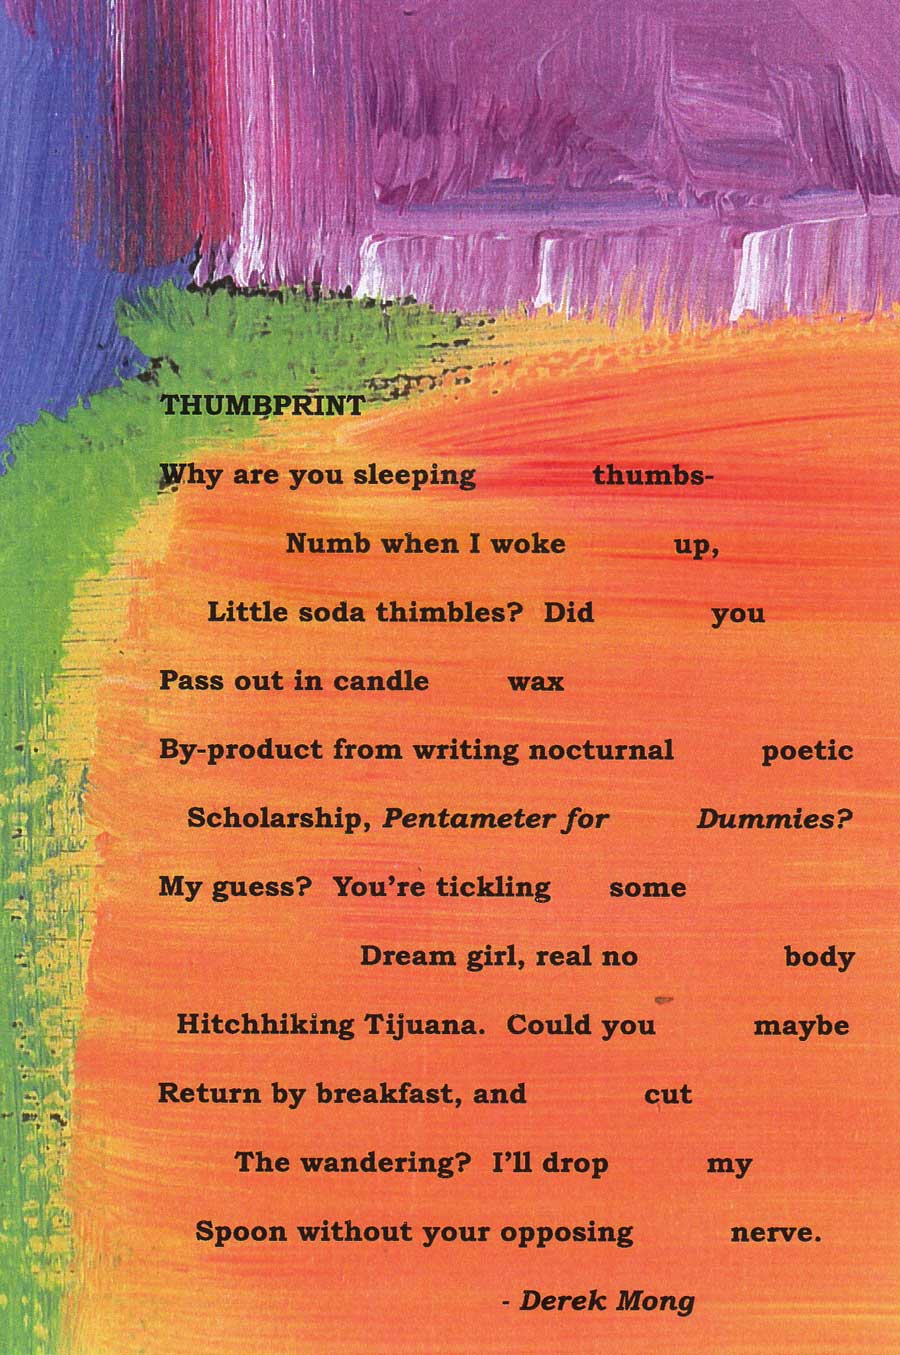 THUMBPRINT
Why are you sleeping thumbs-
Numb when I woke up,
Little soda thimbles? Did you
Pass out in candle wax
By-product from writing nocturnal poetic
Scholarship, Pentameter for Dummies?
My guess? You're tickling some
Dream girl, real no body
Hitchhiking Tijuana. Could you maybe
Return by breakfast, and cut
The wandering? I'll drop my
Spoon without your opposing nerve.
- Derek Mong